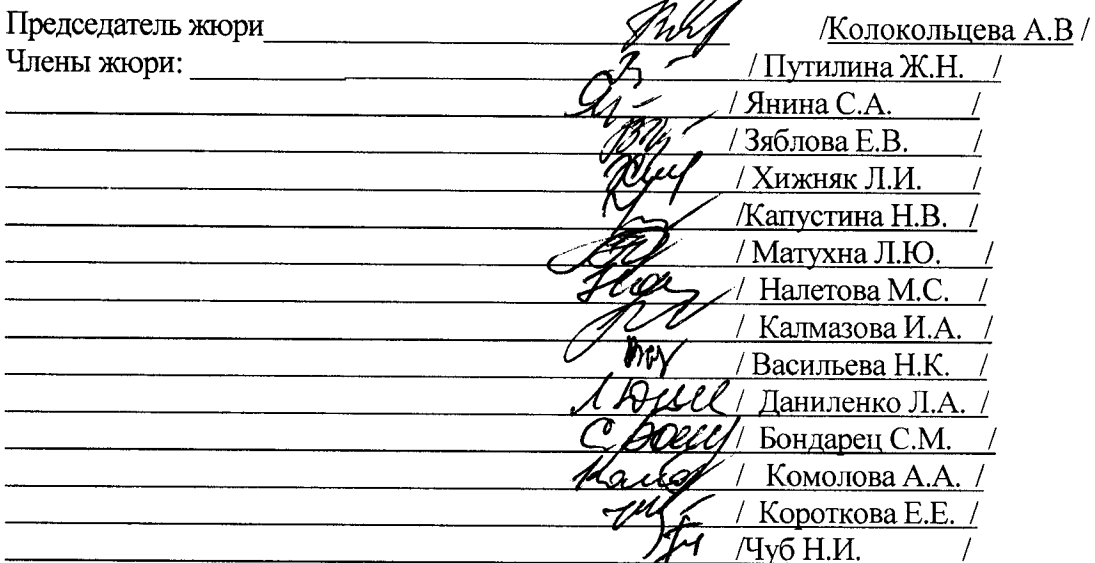 Председатель жюри /Колокольцева А.В /
Члены жюри: / Путилина Ж.Н. /
/ Янина С.А. /
/ Зяблова Е.В. /
/ Хижняк Л.И. /
/Капустина Н.В. /
/ Матухна Л.Ю. /
/ Налетова М.С. /
/ Калмазова И.А. /
/ Васильева Н.К. /
/ Даниленко Л.А. /
/ Бондарец С.М. /
/ Комолова А.А. /
/ Короткова Е.Е. /
/Чуб Н.И. /